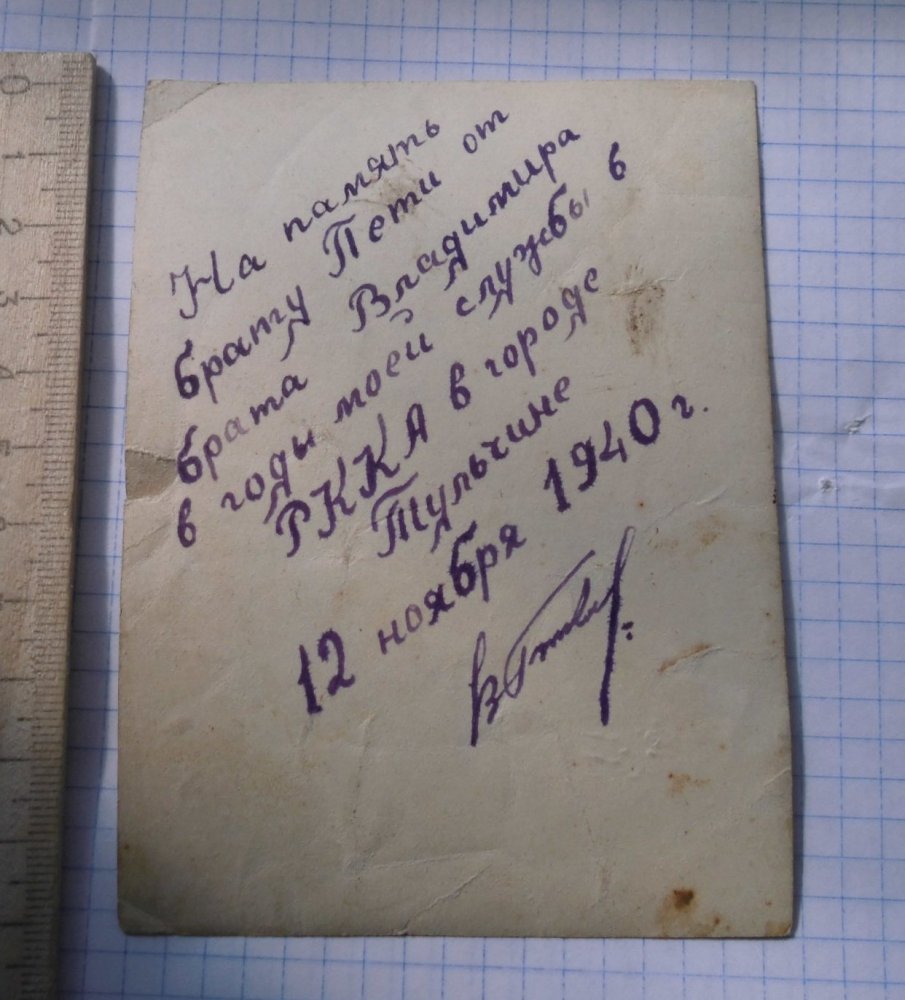 На память
брату Пети от
брата Владимира
в годы моей службы в
РККА в городе
Тульчине
12 ноября 1940 г.
0
1
2
3
4